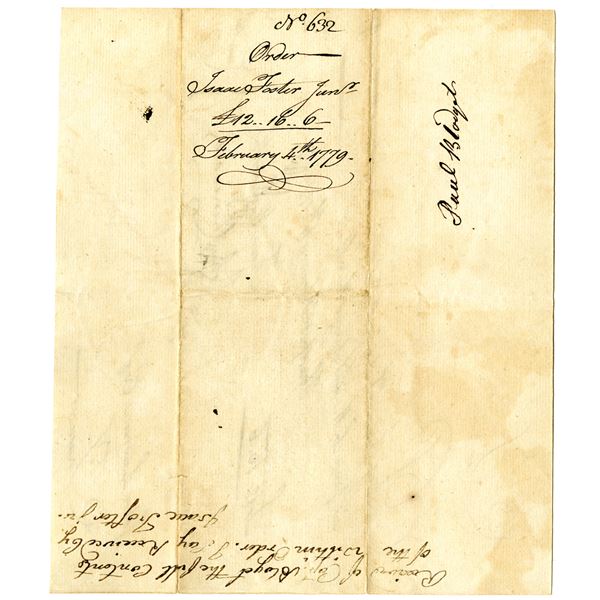 No. 632
Order
Isaac Foster Junr
£12.. 16.. 6
February 4th.. 1779.
Paul Blodget
Received of Capt. Blodget the full Contents
of the within Order. I Say Received by
Isaac Foster jr.